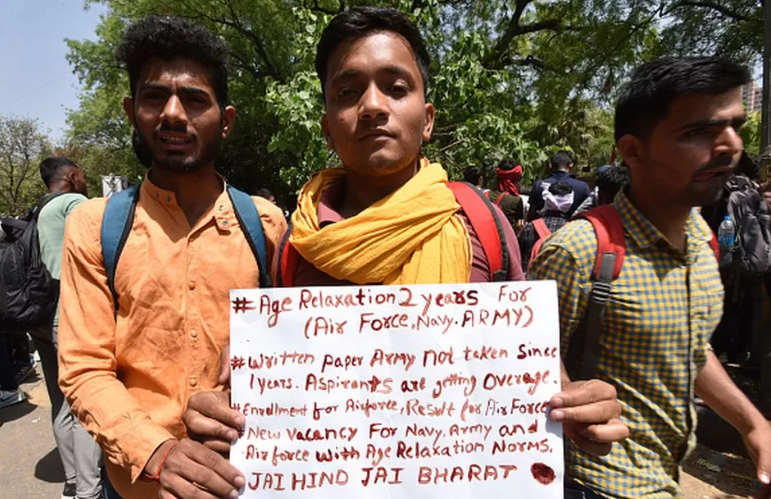 # Age Relaxation 2 years For
(Air Force, Navy, ARMY)
# Written paper Army Not taken Since
1 years. Aspirants are getting Overage.
# Enrollment for Airforce, Result for Air Force
# New Vacancy For Navy, Army and
Airforce with Age Relaxation Norms.
JAI HIND JAI BHARAT